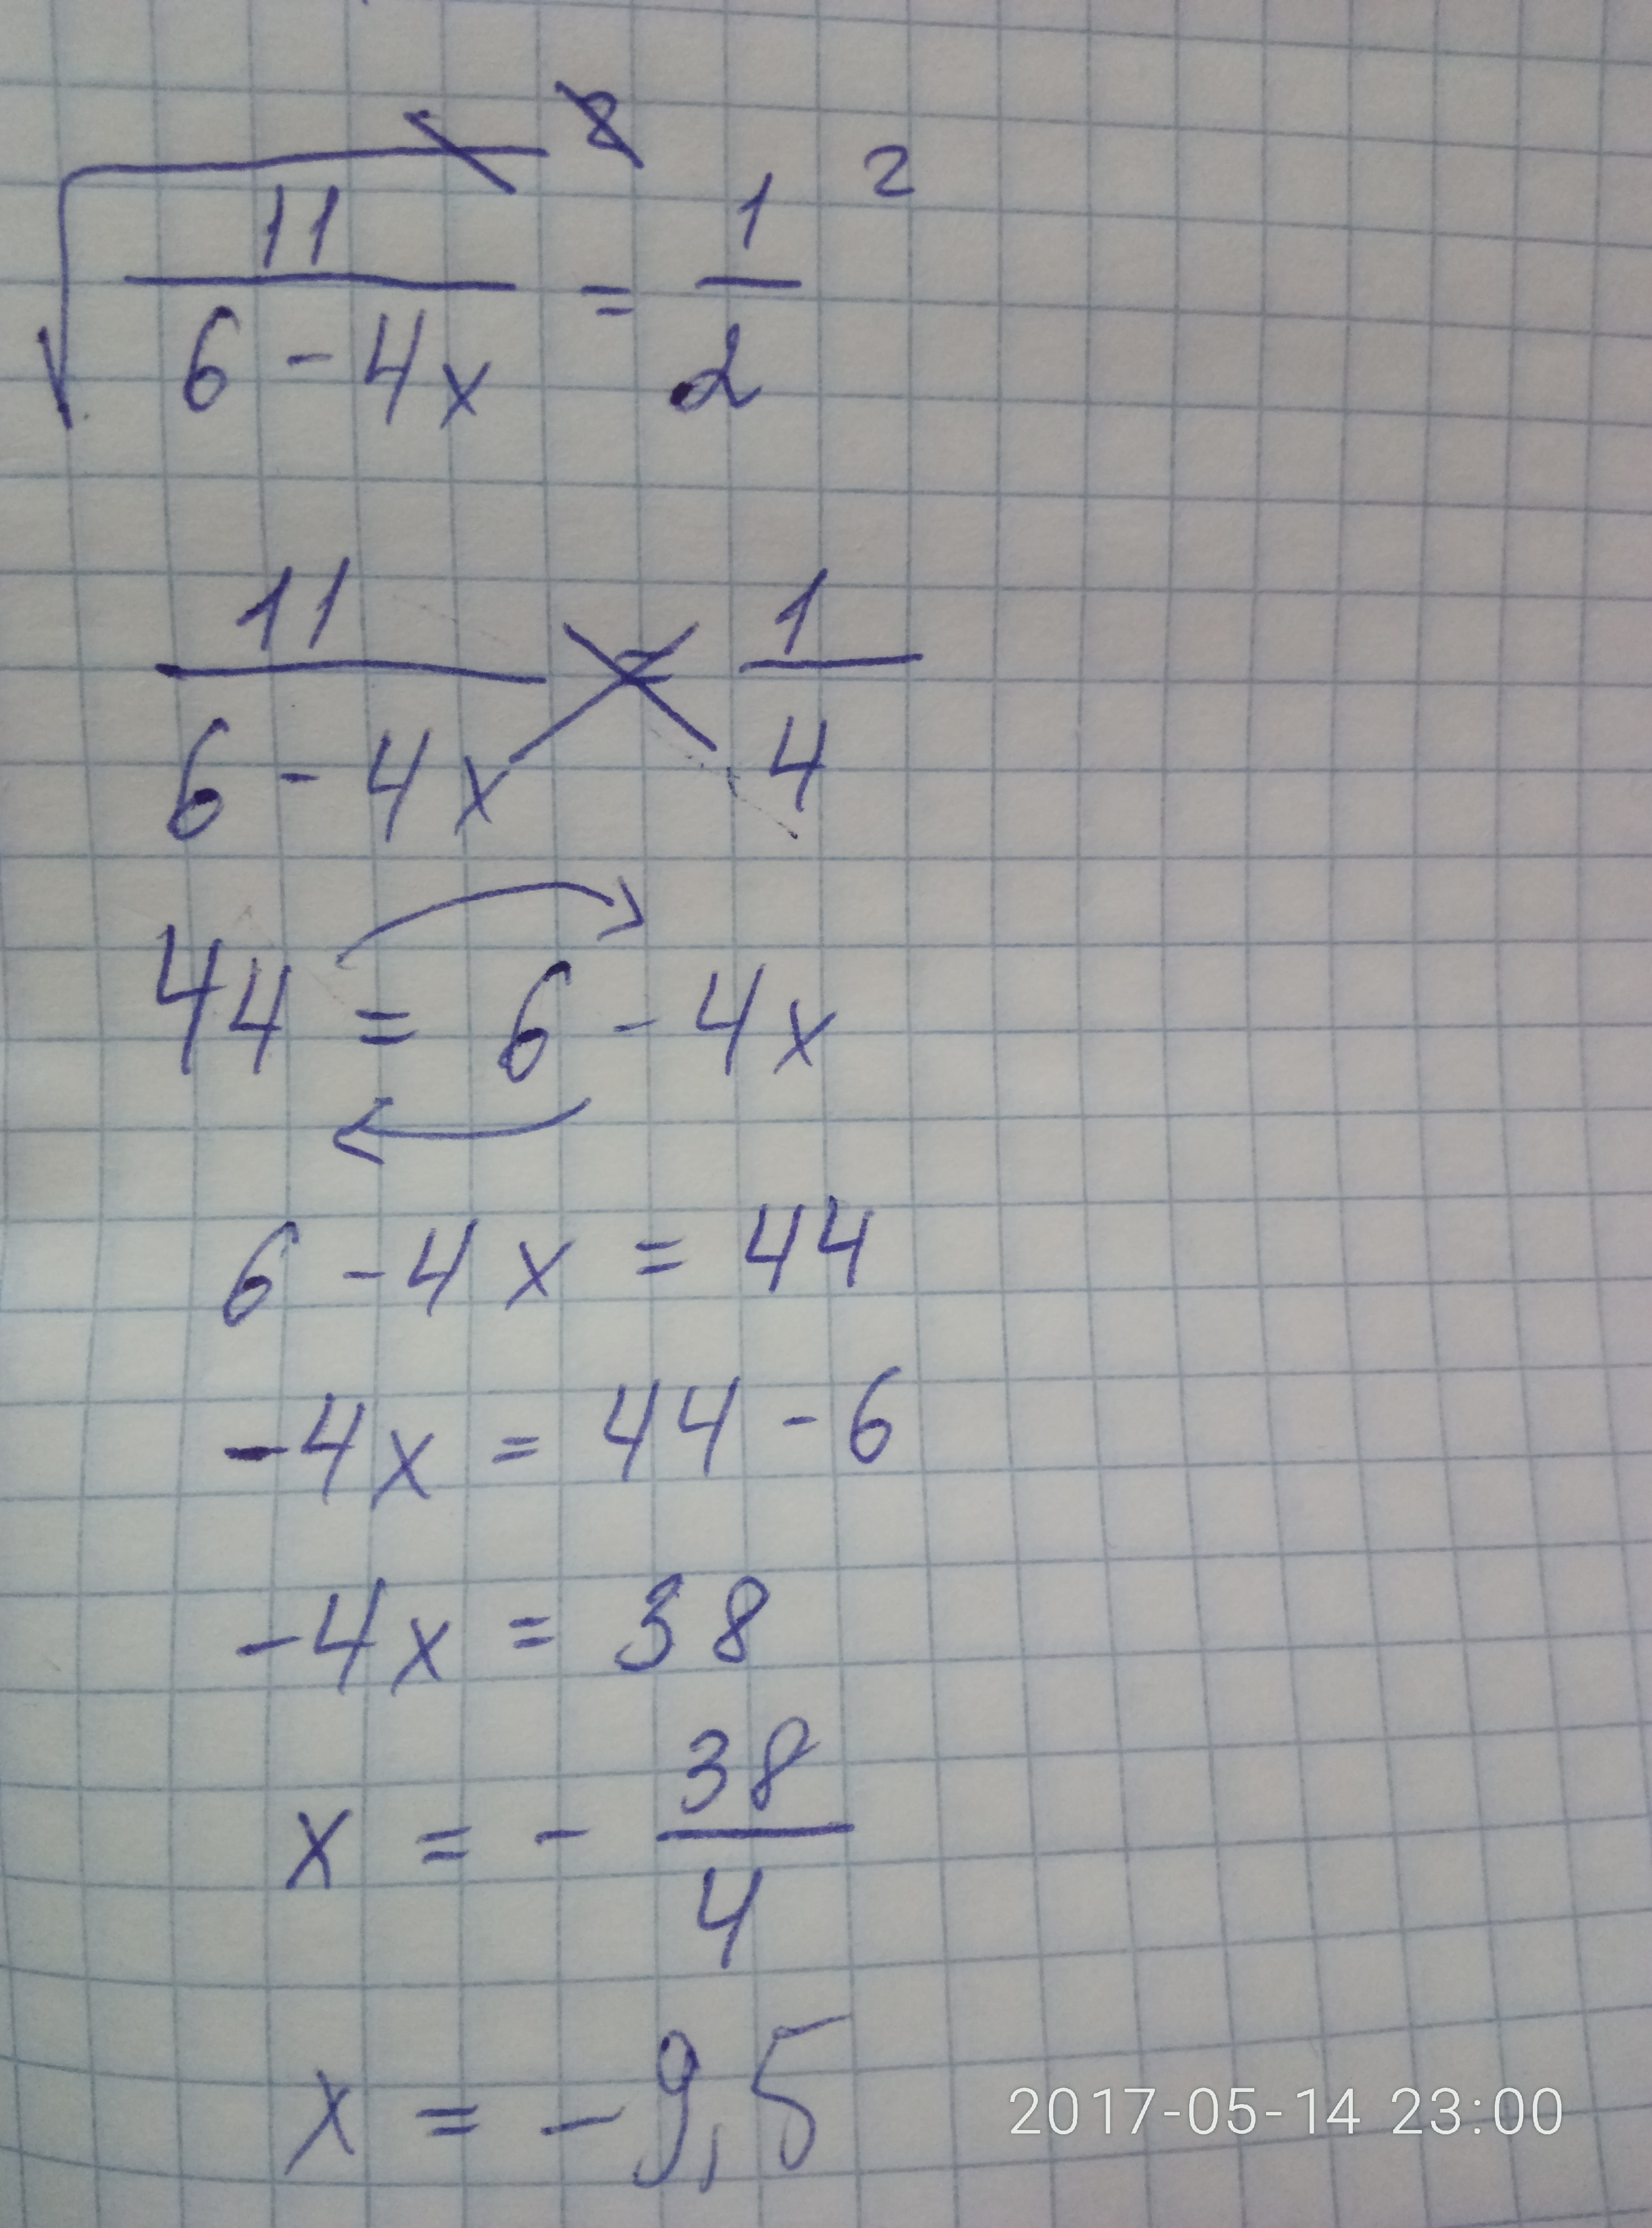 √(11/(6-4x))² = 1/2 ²
11/(6-4x) = 1/4
44 = 6-4x
6-4x = 44
-4x = 44-6
-4x = 38
x = -38/4
x = -9,5
2017-05-14 23:00